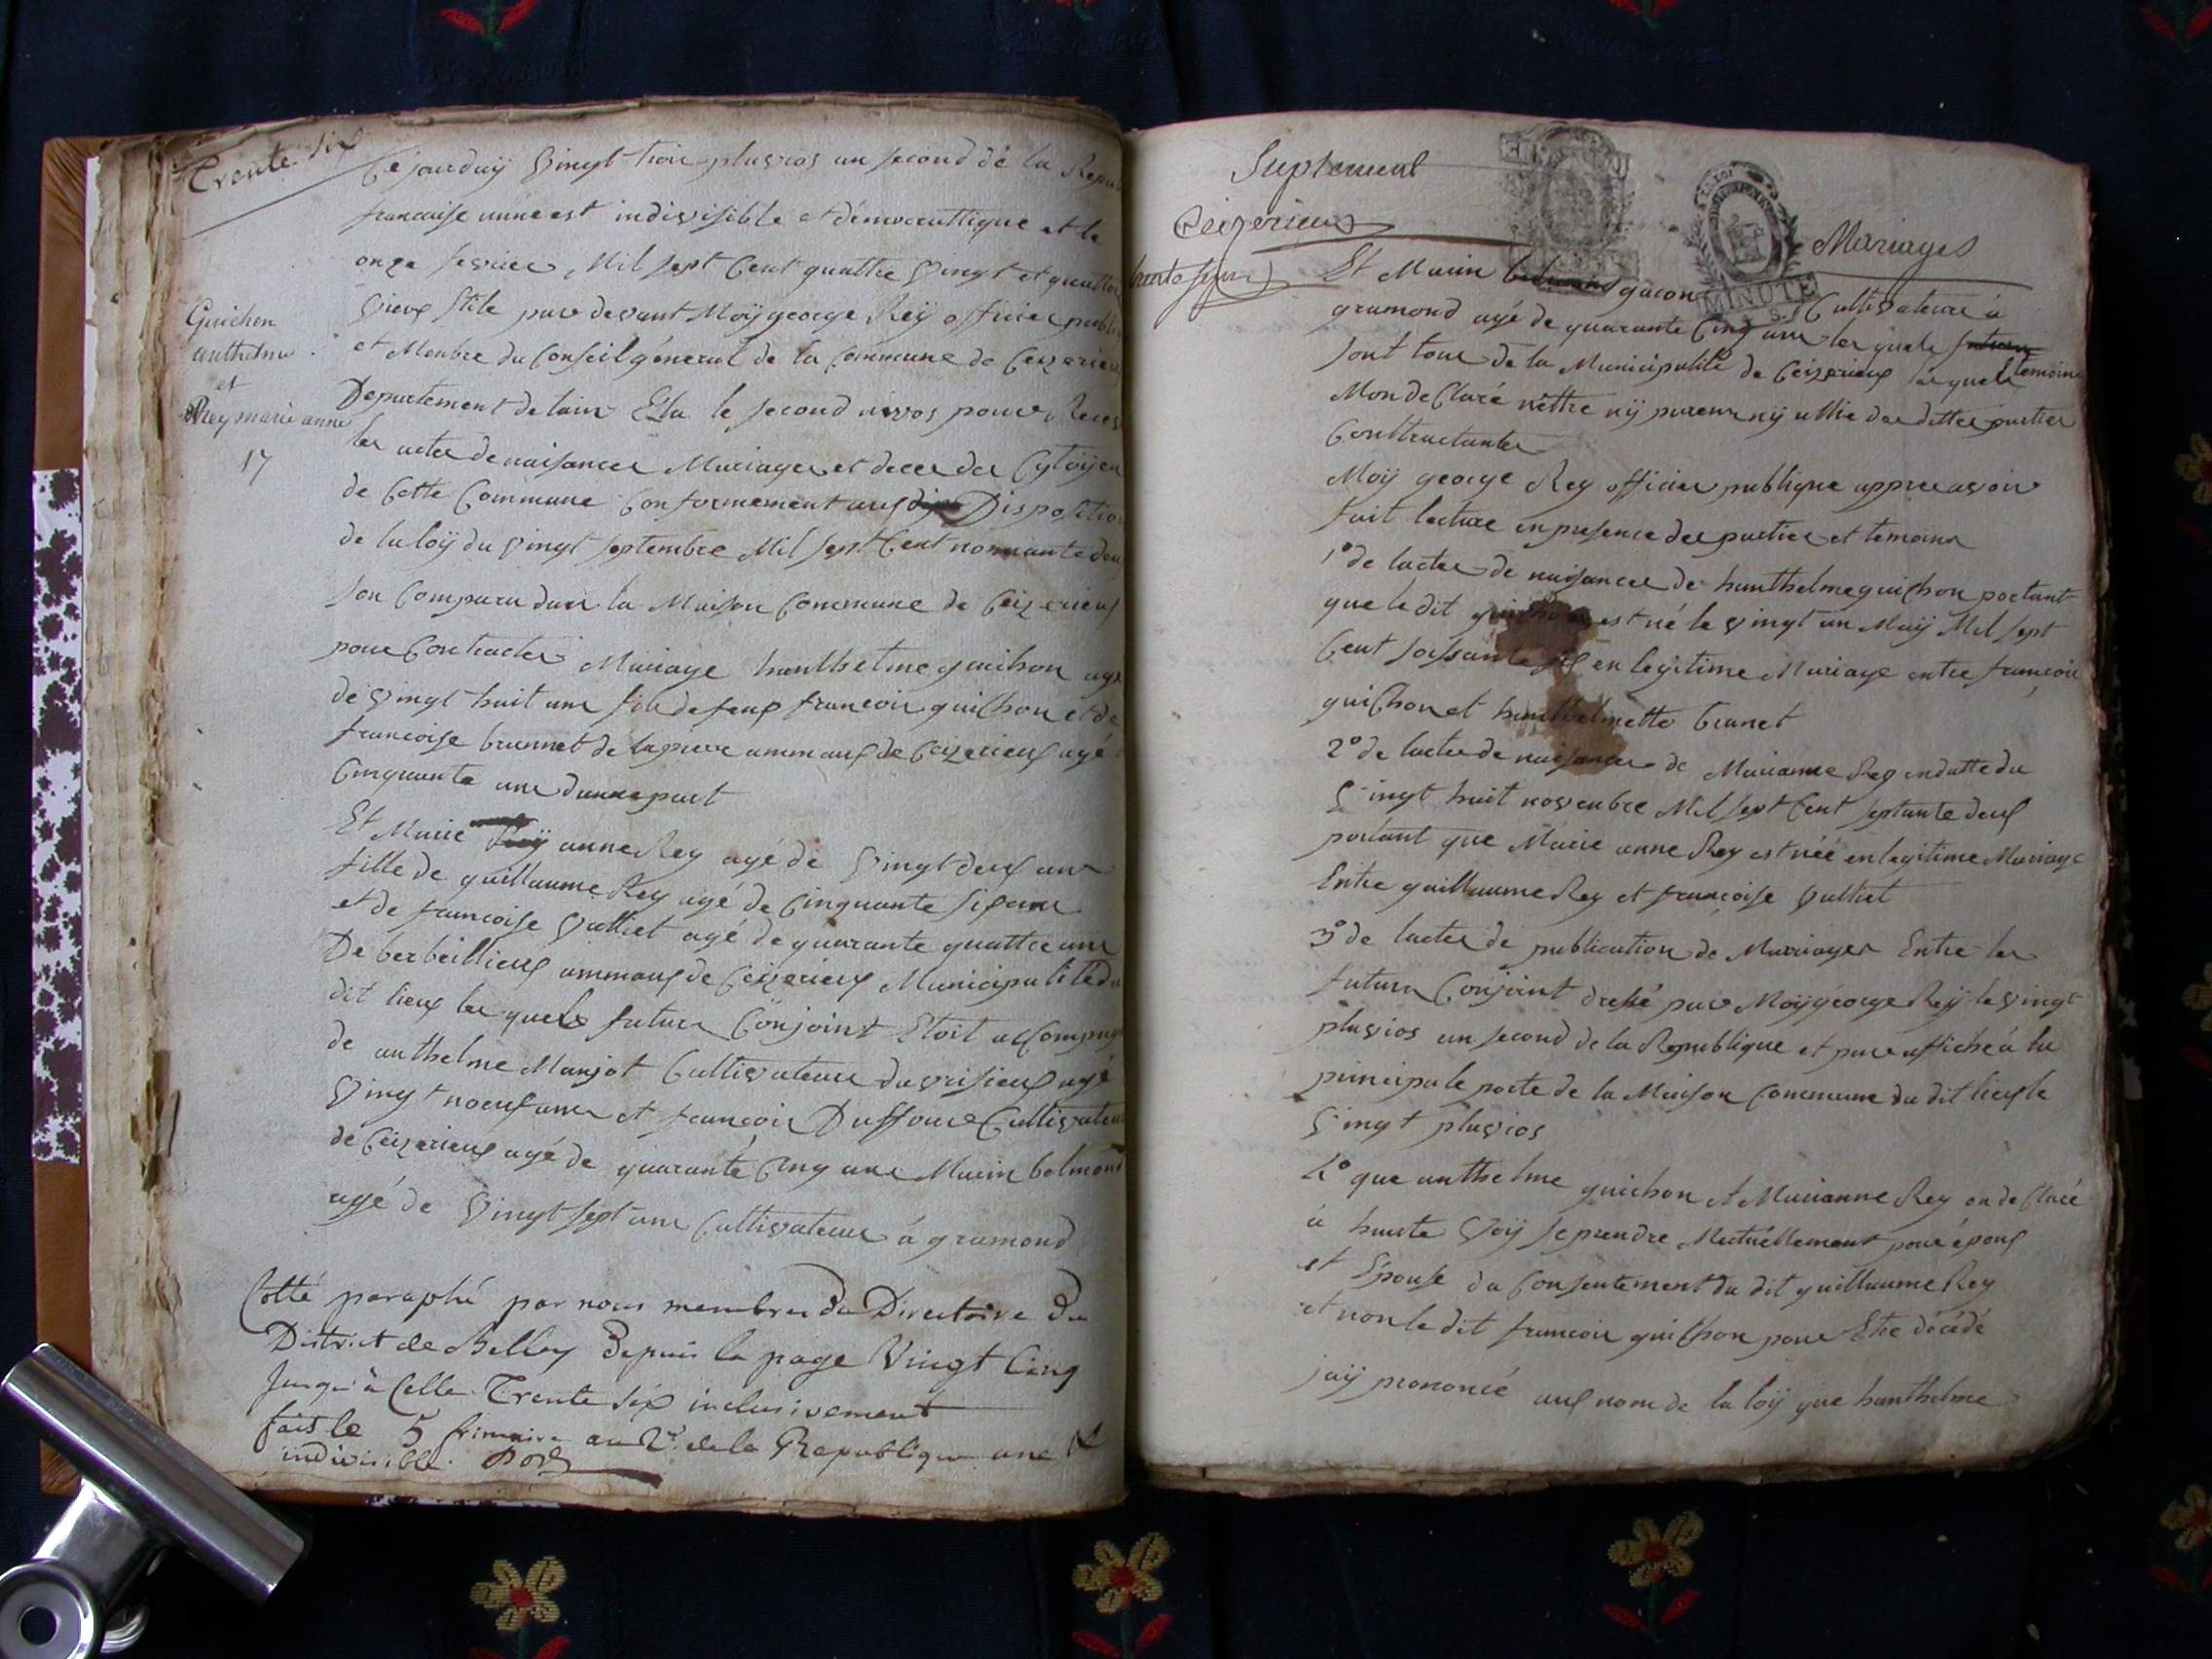 Trente Six
Cejourduÿ vingt trois pluvios an second de la Repub
francaise unne est indivisible et démocrattique et le
onze fevrier Mil sept Cent quattre vingt et quattor
vieux stile par devant Moÿ george Reÿ officier publi
et Membre du Conseil géneral de la Commune de Ceizerieux
Departement de lain Elu le second nivos pour Recev
les actes de naisances Mariages et deces des Cytoÿen
de Cette Commune Conformement aux Disposition
de la loÿ du vingt septembre Mil sept Cent nonnante deu
son Comparu dans la Maison Commune de Ceizerieux
pour Contracter Mariage hanthelme guihon agé
de vingt huit ans fils de feux francois guichon et de
francoise brunnet de lapierre ammaux de Ceizerieux agé
Cinquante ans dunne part
Et Marie Reÿ anne Rey agé de vingt deux ans
fille de guillaume Rey agé de Cinquante six ans
et de francoise vulliet agé de quarante quattre ans
De berbeillieux ammaux de Ceizerieux Municipalité du
dit lieux les quels futurs Conjoint Etoit acCompag
de anthelme Manjot Cultivateur de vrisieux agé
vingt noeuf ans et francois Duffour Cultivateur
de Ceizerieux agé de quarante Cinq ans Marin belmond
agé de vingt sept ans Cultivateur á gramond
Guichon
anthelme
et
Rey marie anne
17
Cotté paraphé par nous membres du Directoire du
District de Belley Depuis la page Vingt Cinq
jusqu'à Celle Trente Six inclusivement
fait le 5 frimaire an 2ᵈ. de la Republique une &
indivisible.
Suplement
Ceizerieux
Mariages
MINUTE
trente sept
Et Marin gacon Cultivateur á
gramond agé de quarante Cinq ans les quels temoins
sont tous de la Municipalité de Ceizerieux les quels
Mon deClaré nêttre nÿ parens nÿ allié des dittes parties
Conttractantes
Moÿ george Rey officier publique appres avoir
fait lecture en presence des parties et temoins
1° de lactes de naisances de hanthelme guichon portant
que le dit guichon est né le vingt un Maÿ Mil sept
Cent soissante six en legitime Mariage entre francois
guichon et hanthelmette brunet
2° de lactes de naisances de Marianne Rey endatte du
vingt huit novenbre Mil sept Cent septante deux
portant que Marie anne Rey est néé en legitime Mariage
Entre guillaume Rey et francoise vulliet
3° de lactes de publication de Mariages Entre les
futurs Conjoint dresé par Moÿ george Reÿ le vingt
pluvios an second de la Republique et par affiché á la
principale porte de la Maison Commune du dit lieux le
vingt pluvios
4° que anthelme guichon et Marianne Rey on de Claré
á haute voÿ se prendre Mutuéllement pour époux
et Épouse du Consentement du dit guillaume Rey
et non le dit francois guichon pour Etre décédé
jaÿ prononcé aux nom de la loÿ que hanthelme